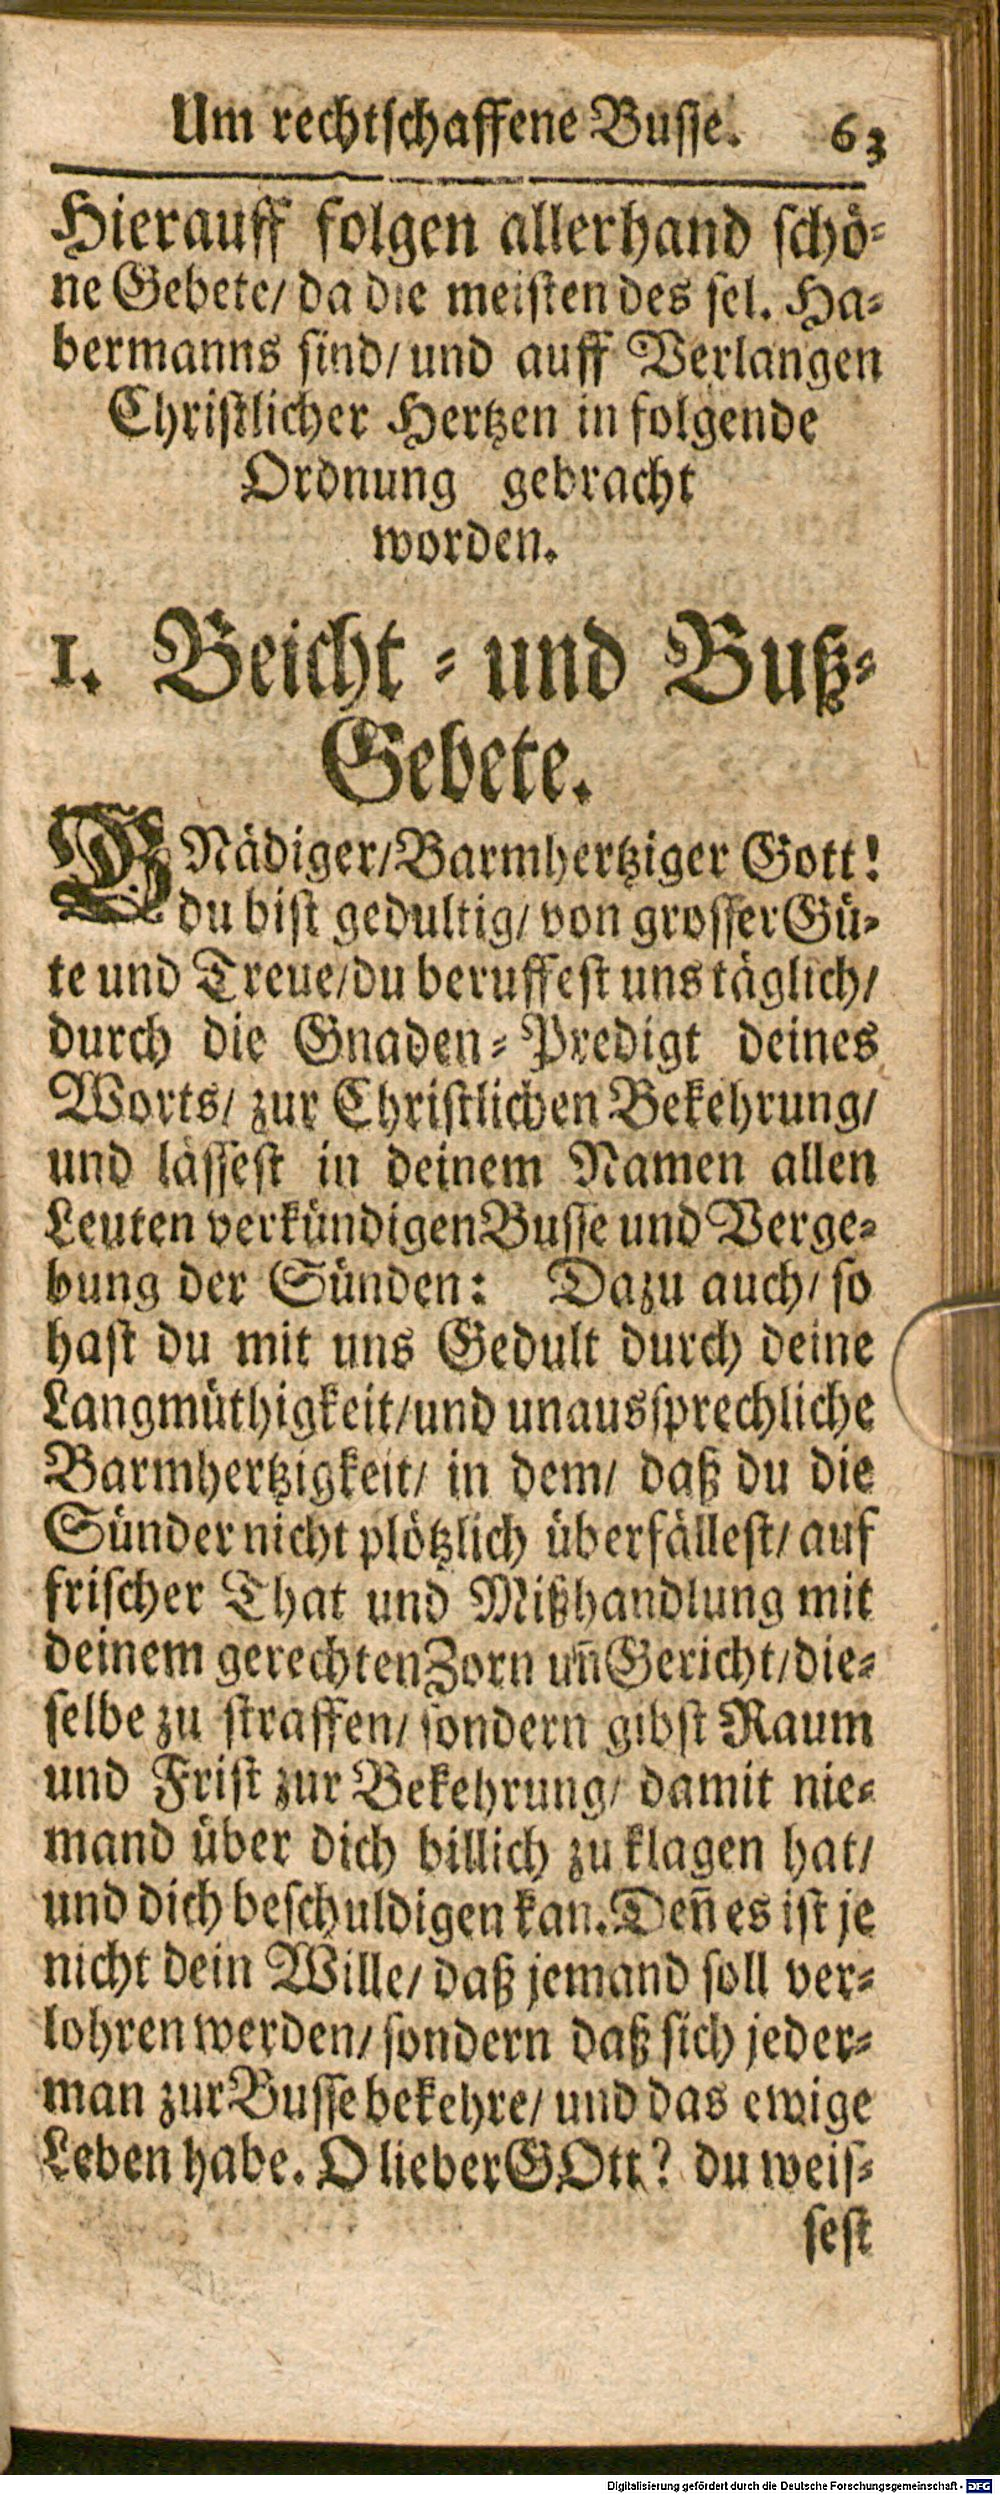 Um rechtschaffene Busse. 63
Hierauff folgen allerhand schö-
ne Gebete/ da die meisten des sel. Ha-
bermanns sind/ und auff Verlangen
Christlicher Hertzen in folgende
Ordnung gebracht
worden.
1. Beicht- und Buß-
Gebete.
GNädiger/ Barmhertziger Gott!
du bist gedultig/ von grosser Gü-
te und Treue/ du beruffest uns täglich/
durch die Gnaden-Predigt deines
Worts/ zur Christlichen Bekehrung/
und lässest in deinem Namen allen
Leuten verkündigen Busse und Verge-
bung der Sünden: Dazu auch/ so
hast du mit uns Gedult durch deine
Langmüthigkeit/ und unaussprechliche
Barmhertzigkeit/ in dem/ daß du die
Sünder nicht plötzlich überfällest/ auf
frischer That und Mißhandlung mit
deinem gerechten Zorn uñ Gericht/ die-
selbe zu straffen/ sondern gibst Raum
und Frist zur Bekehrung/ damit nie-
mand über dich billich zu klagen hat/
und dich beschuldigen kan. Deñ es ist je
nicht dein Wille/ daß jemand soll ver-
lohren werden/ sondern daß sich jeder-
man zur Busse bekehre/ und das ewige
Leben habe. O lieber GOtt? du weis-
sest
Digitalisierung gefördert durch die Deutsche Forschungsgemeinschaft - DFG